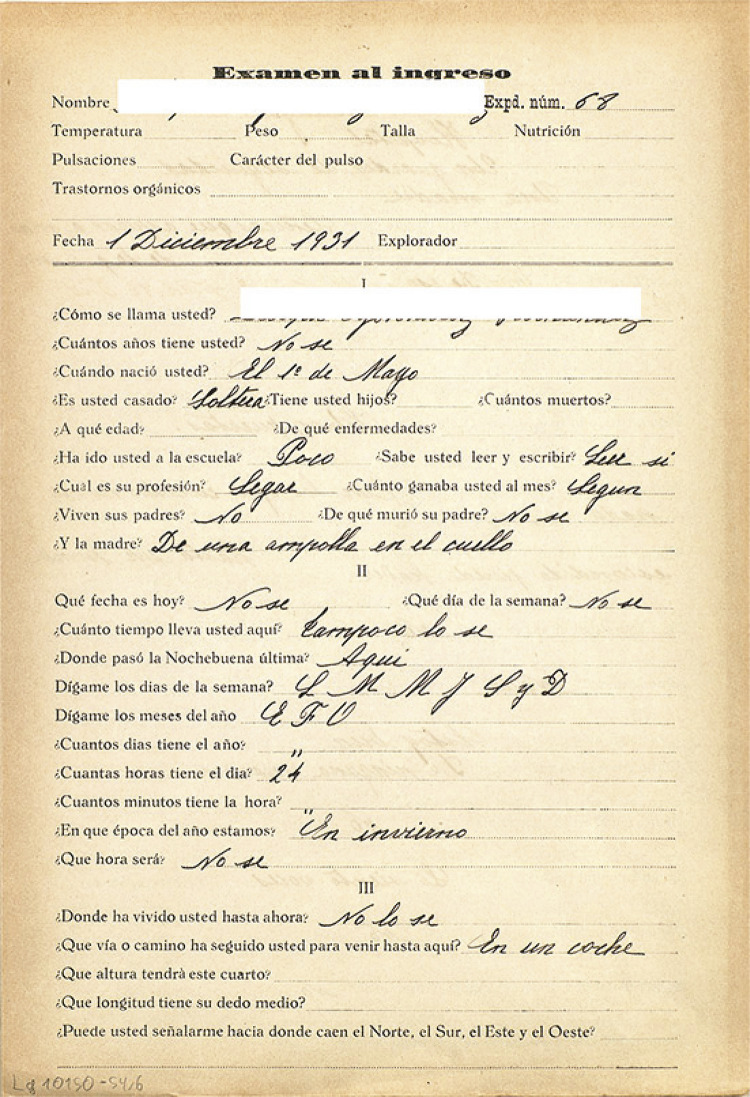 Examen al ingreso
Nombre Expd. núm. 68
Temperatura Peso Talla Nutrición
Pulsaciones Carácter del pulso
Trastornos orgánicos
Fecha 1 Diciembre 1931 Explorador
I
¿Cómo se llama usted?
¿Cuántos años tiene usted? No se
¿Cuándo nació usted? El 1º de Mayo
¿Es usted casado? Soltera ¿Tiene usted hijos? ¿Cuántos muertos?
¿A qué edad? ¿De qué enfermedades?
¿Ha ido usted a la escuela? Poco ¿Sabe usted leer y escribir? Leer si
¿Cual es su profesión? Segar ¿Cuánto ganaba usted al mes? Segun
¿Viven sus padres? No ¿De qué murió su padre? No se
¿Y la madre? De una ampolla en el cuello
II
Qué fecha es hoy? No se ¿Qué día de la semana? No se
¿Cuánto tiempo lleva usted aquí? tampoco lo se
¿Donde pasó la Nochebuena última? Aqui
Dígame los dias de la semana? L M M J S y D
Dígame los meses del año E F O
¿Cuantos dias tiene el año? "
¿Cuantas horas tiene el dia? 24
¿Cuantos minutos tiene la hora? "
¿En que época del año estamos? En invierno
¿Que hora será? No se
III
¿Donde ha vivido usted hasta ahora? No lo se
¿Que vía o camino ha seguido usted para venir hasta aquí? En un coche
¿Que altura tendrá este cuarto?
¿Que longitud tiene su dedo medio?
¿Puede usted señalarme hacia donde caen el Norte, el Sur, el Este y el Oeste?
Lg 10150-54,6